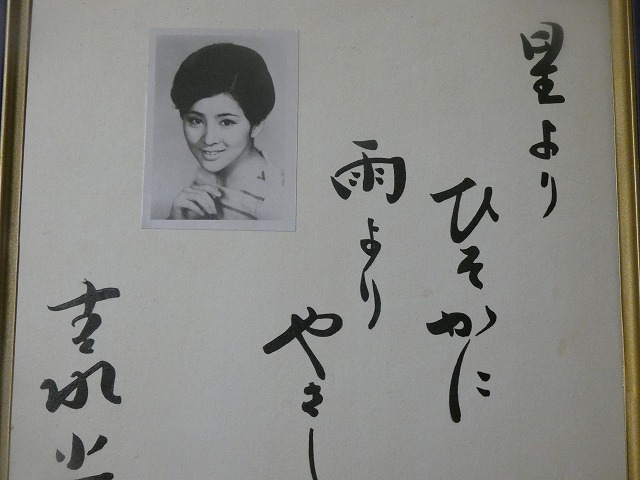 星より
ひそかに
雨より
やさし
吉永小